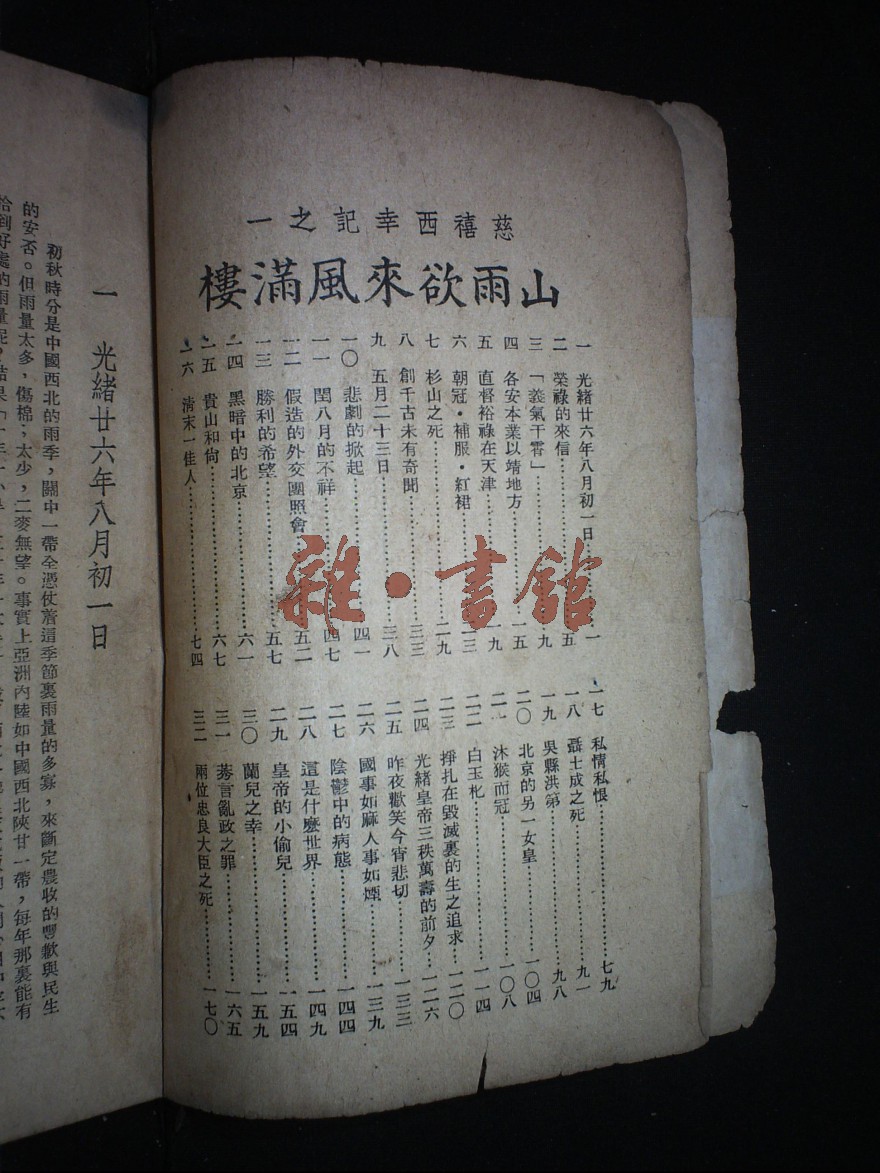 慈禧西幸記之一
山雨欲來風滿樓
一 光緒廿六年八月初一日……一
二 榮祿的來信……五
三 「義氣干霄」……九
四 各安本業以靖地方……一五
五 直督裕祿在天津……一九
六 朝冠·補服·紅裙……二三
七 杉山之死……二九
八 創千古未有奇聞……三三
九 五月二十三日……三八
一〇 悲劇的掀起……四一
一一 閏八月的不祥……四七
一二 假造的外交團照會……五二
一三 勝利的希望……五七
一四 黑暗中的北京……六一
一五 貴山和尙……六七
一六 清末一佳人……七四
一七 私情私恨……七九
一八 聶士成之死……九一
一九 吳縣洪第……九八
二〇 北京的另一女皇……一〇四
二一 沐猴而冠……一〇八
二二 白玉札……一一四
二三 掙扎在毀滅裏的生之追求……一二〇
二四 光緒皇帝三秩萬壽的前夕……一二六
二五 昨夜歡笑今宵悲切……一三三
二六 國事如麻人事如煙……一三九
二七 陰鬱中的病態……一四四
二八 這是什麽世界……一四九
二九 皇帝的小偷兒……一五四
三〇 蘭兒之幸……一五九
三一 莠言亂政之罪……一六五
三二 兩位忠良大臣之死……一七〇
雜·書館
一 光緒廿六年八月初一日
初秋時分是中國西北的雨季，關中一帶全憑仗着這季節裏雨量的多寡，來斷定農收的豐歉與民生
的安否。但雨量太多，傷棉；太少，二麥無望。事實上亞洲內陸如中國西北陝甘一帶，每年那裏能有
恰到好處的雨量呢？結果